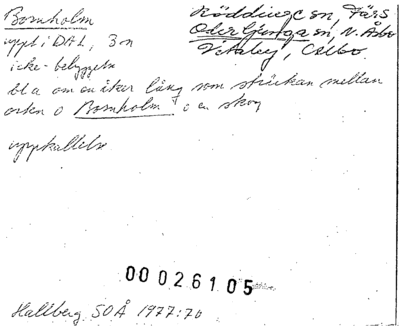 Bornholm
uppt i DAL, 3 n
icke-bebyggelse
bl a om en åker lång som sträckan mellan
orten o Bornholm i en skog
uppkallelse
Röddinge sn, Färs
Oderljunga sn, N. Åsbo
Vitaby, Albo
00026105
Hallberg SOÅ 1977:70